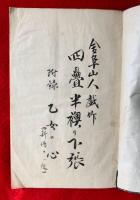 金阜山人戯作
四畳半襖の下張
附録
乙女の心